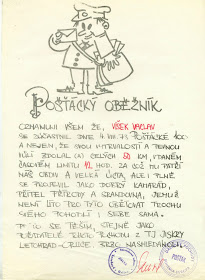 POŠŤÁCKÝ OBĚŽNÍK
OZNAMUJI VŠEM ŽE, VŠEK VÁCLAV
SE ZÚČASTNIL DNE 4.XII.71 POŠŤÁCKÉ 100
A NEJEN, ŽE SVOU VYTRVALOSTÍ A PEVNOU
VŮLÍ ZDOLAL (A) CELÝCH 50 KM, V DANÉM
ČASOVÉM LIMITU 12 HOD. ZA COŽ MU PATŘÍ
NÁŠ OBDIV A VELKÁ ÚCTA, ALE I PLNĚ
SE PROJEVIL JAKO DOBRÝ KAMARÁD,
PŘÍTEL PŘÍRODY A SRANDISTA, JEMUŽ
NENÍ LÍTO PRO TYTO OBĚTOVAT TROCHU
SVÉHO POHODLÍ I SEBE SAMA.
PROTO SE TĚŠÍM, STEJNĚ JAKO
POŘADATELÉ TÉTO AKCE Z TJ JISKRY
LETOHRAD-ORLICE. BRZO NASHLEDANOU.